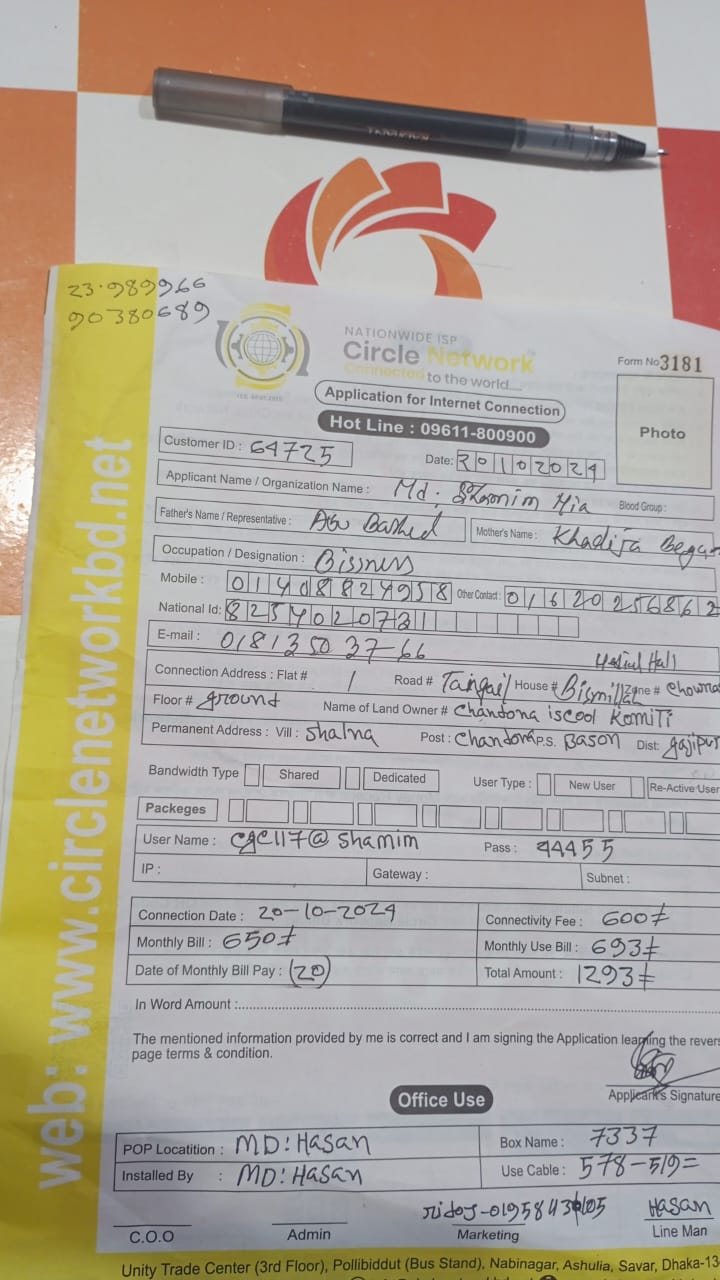 23.989966
90380689
NATIONWIDE ISP
Circle Network
Connected to the world....
Form No 3181
Application for Internet Connection
Hot Line : 09611-800900
Photo
Customer ID : 64725
Date: 20102024
Applicant Name / Organization Name : Md. Shamim Mia Blood Group :
Father's Name / Representative : Abu Bashed Mother's Name : Khadija Begum
Occupation / Designation : Bissness
Mobile : 01408824958 Other Contact : 01620256862
National Id: 8254020731
E-mail : 0181350 37-66
Hall
Connection Address : Flat # 1 Road # Tangail House # Bismillah Zone # Chowra
Floor # ground Name of Land Owner # Chandona iscool Komiti
Permanent Address : Vill : Shalna Post : Chandona P.S. Bason Dist: Gajipur
Bandwidth Type Shared Dedicated User Type : New User Re-Active User
Packeges
User Name : cgc117@shamim Pass : 44455
IP : Gateway : Subnet :
Connection Date : 20-10-2024 Connectivity Fee : 600/=
Monthly Bill : 650/= Monthly Use Bill : 693/=
Date of Monthly Bill Pay : (20) Total Amount : 1293/=
In Word Amount :
The mentioned information provided by me is correct and I am signing the Application learning the revers
page terms & condition.
Applicant's Signature
Office Use
POP Locatition : MD: Hasan Box Name : 7337
Installed By : MD: Hasan Use Cable : 578-519=
Hasan
C.O.O Admin Marketing Line Man
Unity Trade Center (3rd Floor), Pollibiddut (Bus Stand), Nabinagar, Ashulia, Savar, Dhaka-13
web: www.circlenetworkbd.net